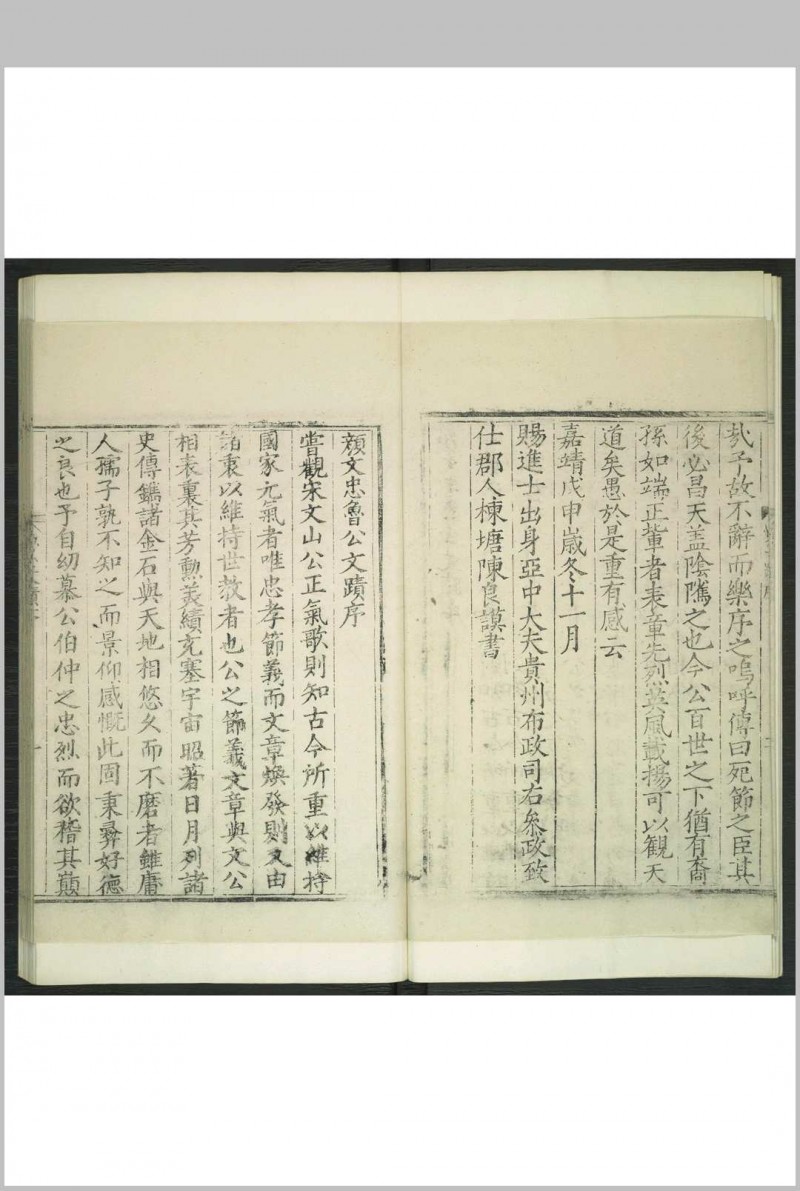 哉予故不辭而樂序之嗚呼傳曰死節之臣其
後必昌天盖陰隲之也今公百世之下猶有裔
孫如端正輩者表章先烈英風載揚可以觀天
道矣愚於是重有感云
嘉靖戊申歲冬十一月
賜進士出身亞中大夫貴州布政司右叅政致
仕郡人棟塘陳良謨書
顔文忠魯公文蹟序
嘗觀宋文山公正氣歌則知古今所重以維持
國家元氣者唯忠孝節義而文章煥發則又由
諸衷以維持世教者也公之節義文章與文公
相表裏其芳勲美績充塞宇宙昭著日月列諸
史傳鐫諸金石與天地相悠久而不磨者雖庸
人孺子孰不知之而景仰感慨此固秉彛好德
之良也予自幼慕公伯仲之忠烈而欲稽其巔